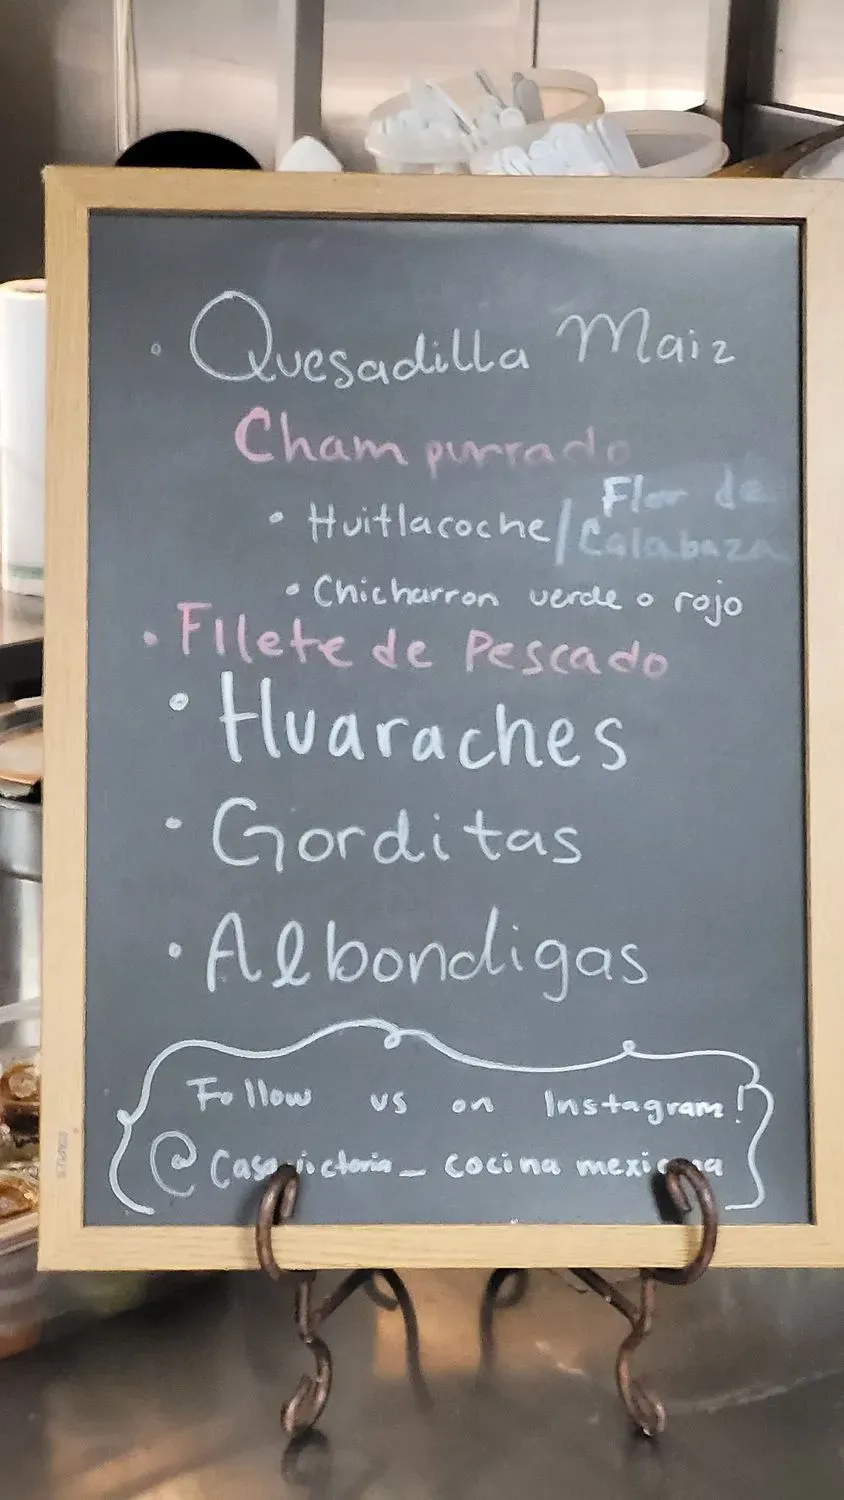 • Quesadilla Maiz
Champurrado
• Huitlacoche/Flor de Calabaza
• Chicharron verde o rojo
• Filete de Pescado
• Huaraches
• Gorditas
• Albondigas
Follow us on Instagram!
@Casavictoria_cocina mexicana